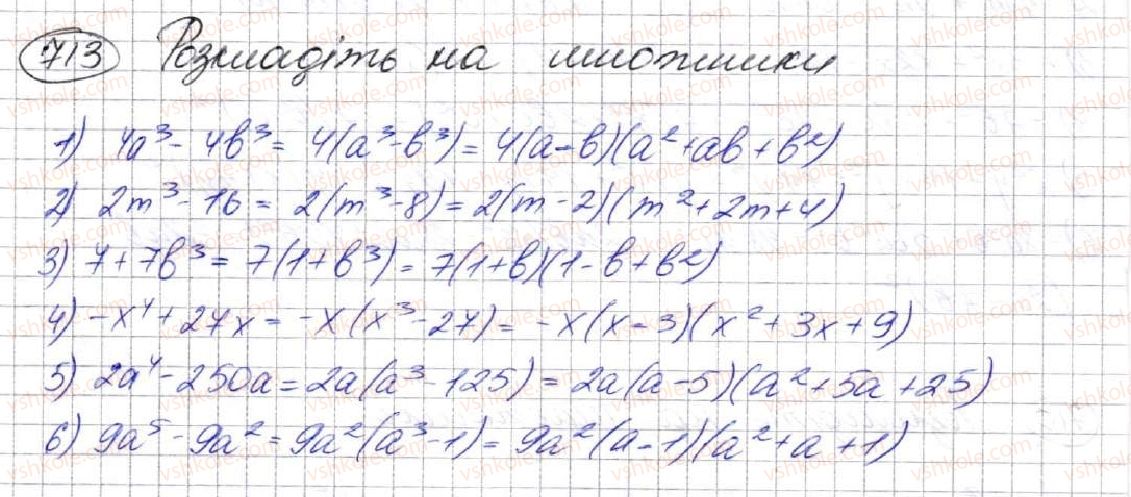 713 Розкладіть на множники
1) 4a³ - 4b³ = 4(a³-b³) = 4(a-b)(a²+ab+b²)
2) 2m³ - 16 = 2(m³-8) = 2(m-2)(m²+2m+4)
3) 7+7b³ = 7(1+b³) = 7(1+b)(1-b+b²)
4) -x⁴+27x = -x(x³-27) = -x(x-3)(x²+3x+9)
5) 2a⁴-250a = 2a(a³-125) = 2a(a-5)(a²+5a+25)
6) 9a⁵-9a² = 9a²(a³-1) = 9a²(a-1)(a²+a+1)